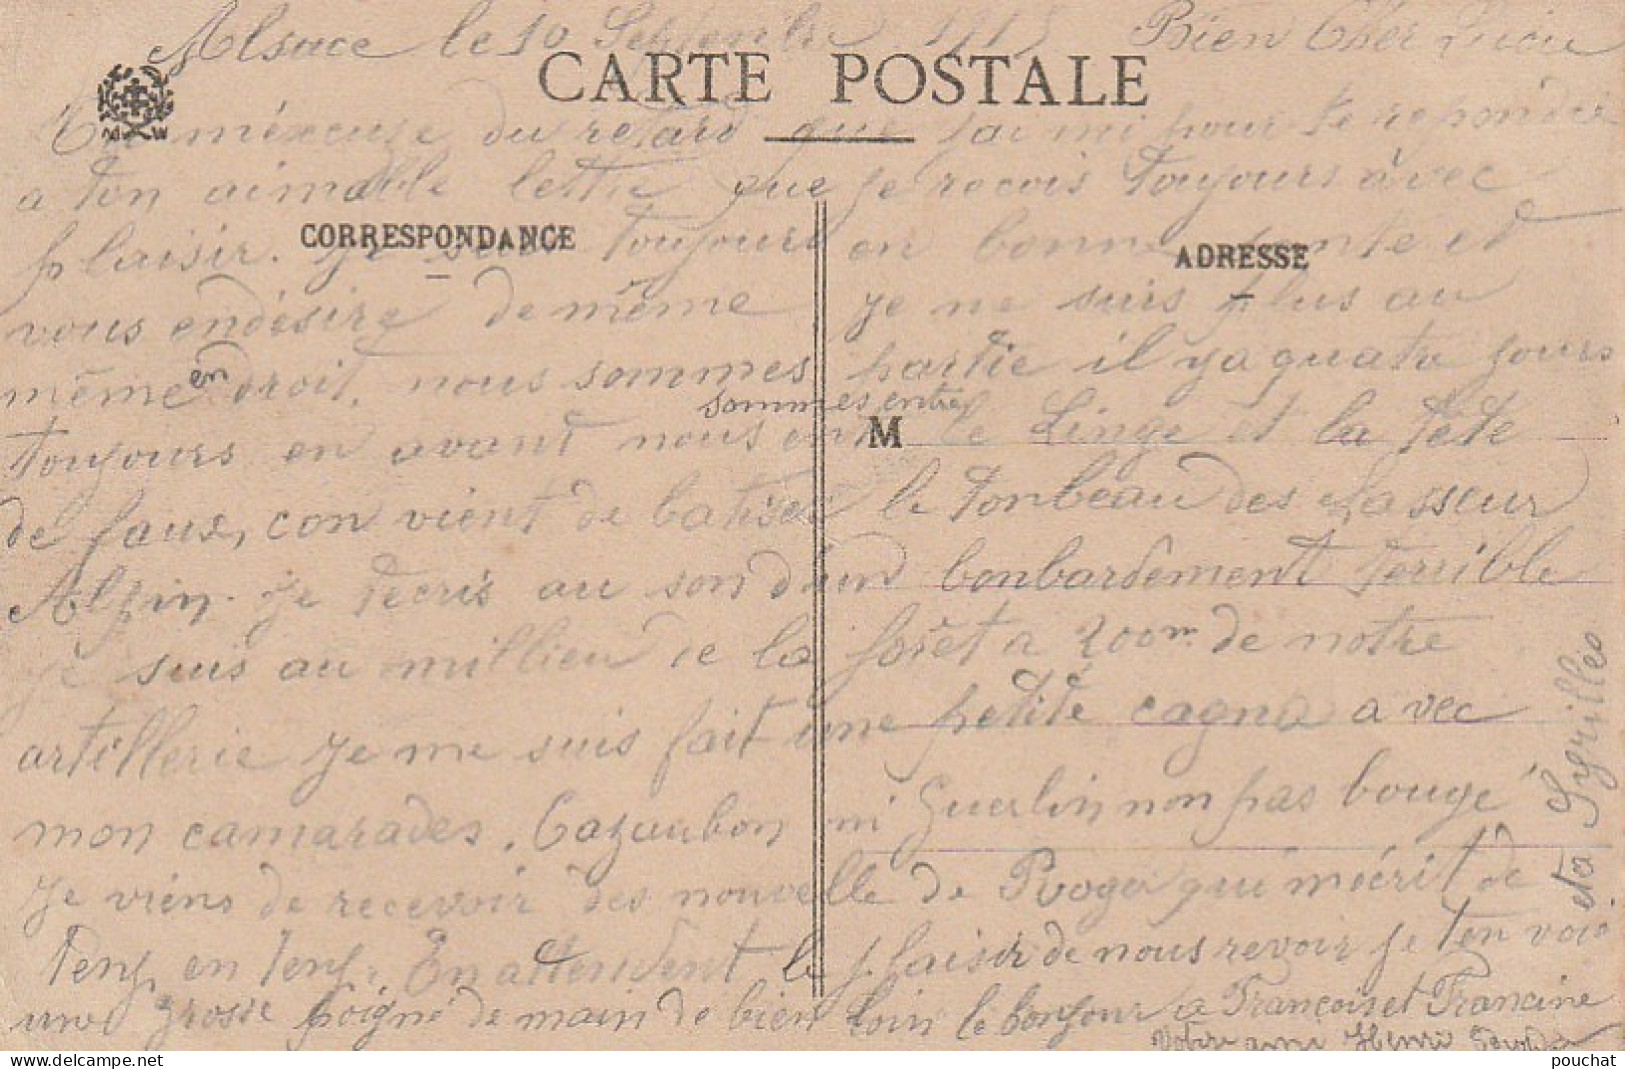 Alsace le 10 Septembre 1915 Bien Cher
CARTE POSTALE
méxcuse du retard que jai mi pour te repondre
a ton aimable lettre que je recois toujours avec
plaisir. je suis toujours en bonne sante et
CORRESPONDANCE
ADRESSE
vous endésire de même je ne suis plus au
même en droit. nous sommes partie il ya quatre jours
sommes entre
toujours en avant nous en M le Linge et la tete
de faux, con vient de batiser le tonbeau des Casseur
Alpin. je tecris au son dun bonbardement terrible
je suis au millieu de la forêt a 200m de notre
artillerie je me suis fait une petite cagna avec
mon camarades. Cazaubon ni Guerlin non pas bougé
je viens de recevoir des nouvelle de Roger qui mécrit de
tenp en tenp. En attendent le plaisir de nous revoir je ten voie
une grosse poigné de main de bien loin le bonjour a Francois et Francine
Votre ami Henri
eta
M W
pouchat